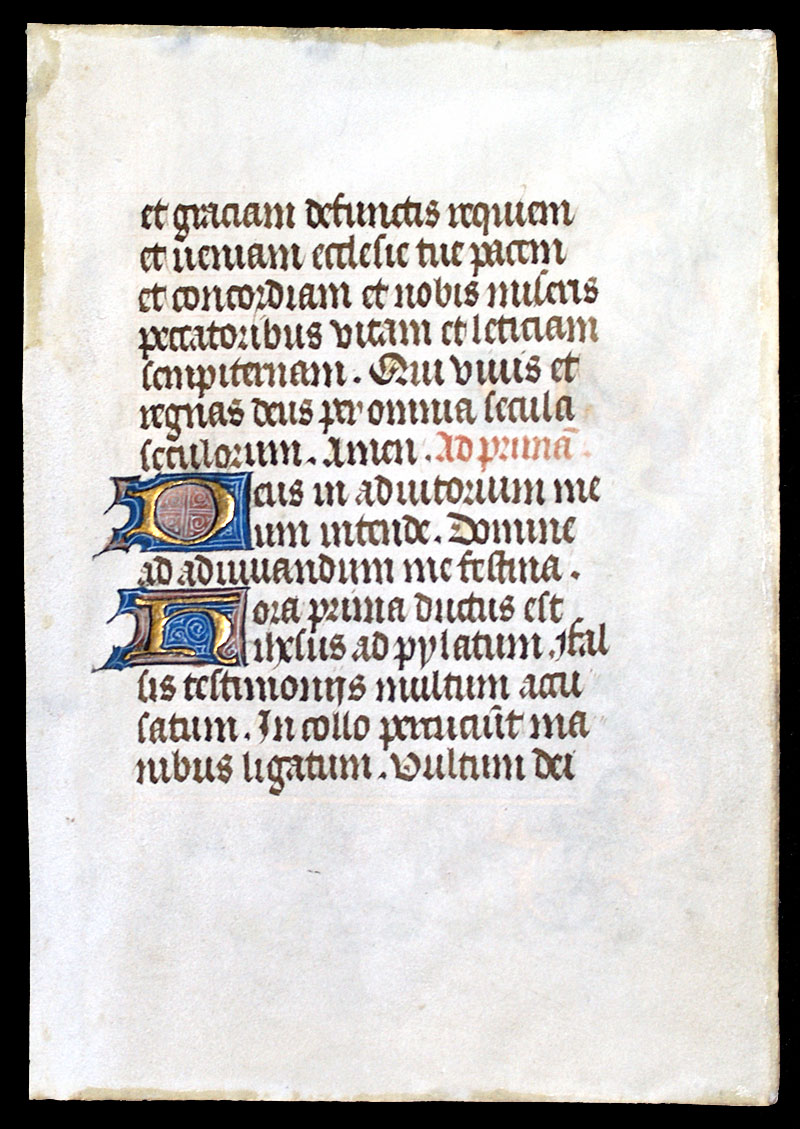 et graciam defunctis requiem
et ueniam ecclesie tue pacem
et concordiam et nobis miseris
peccatoribus vitam et leticiam
sempiternam. Qui viuis et
regnas deus per omnia secula
seculorum. Amen. Ad primā.
Deus in adiutorium me
um intende. Domine
ad adiuuandum me festina.
Hora prima ductus est
ihesus ad pylatum. Fal
sis testimonijs multum accu
satum. In collo percuciūt ma
nibus ligatum. Vultum dei